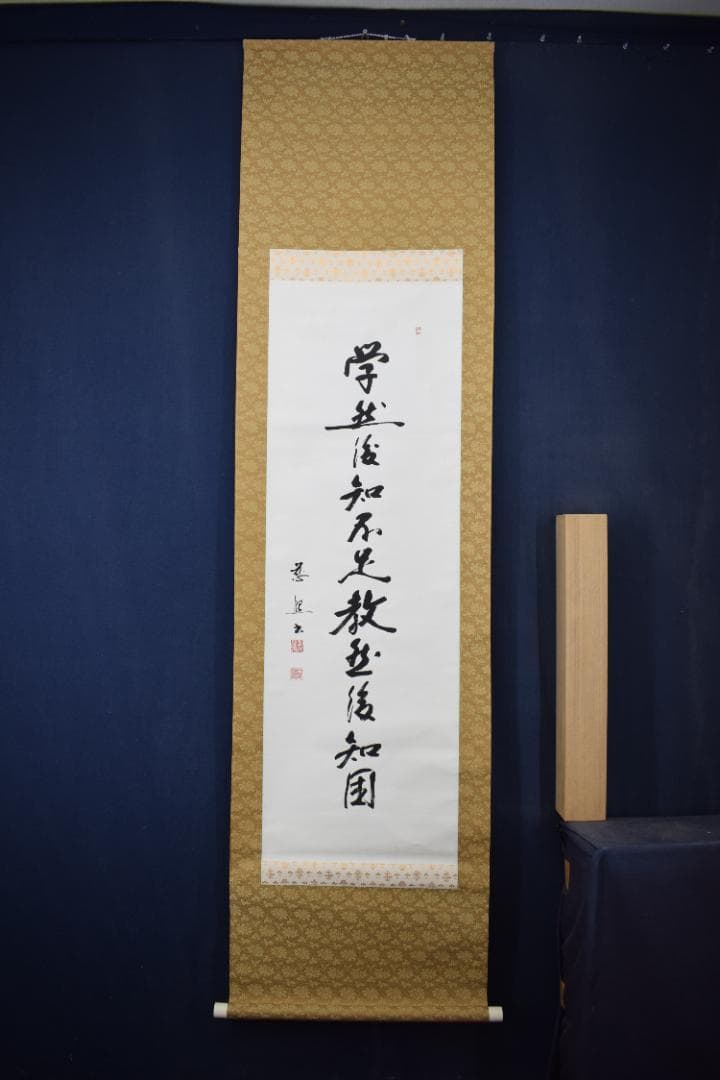 学然後知不足教然後知困